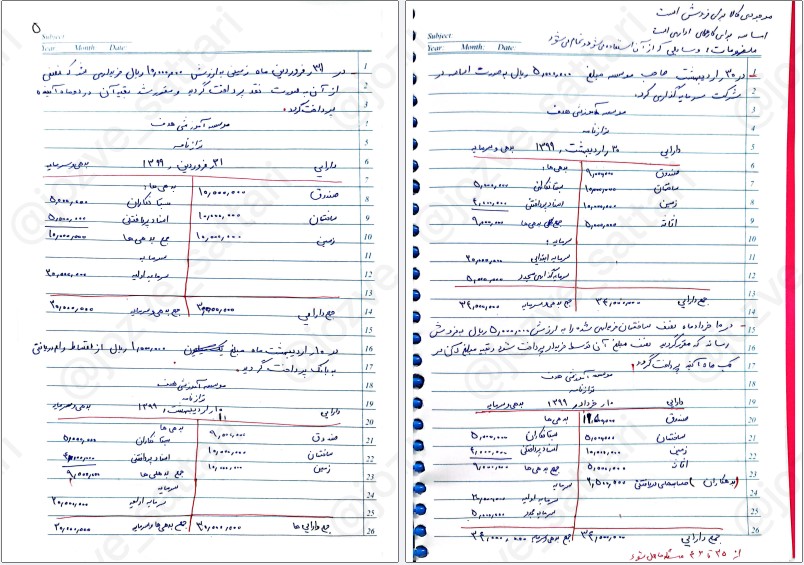 ۵
Subject:
Year: Month: Date:
در ۳۱ فروردین ماه زمینی به ارزش ۱۰,۰۰۰,۰۰۰ ریال خریداری شد که نصف
از آن به صورت نقد پرداخت گردید و مقرر شد بقیه آن در دو ماه آینده
پرداخت گردد.
موسسه آموزشی هدف
ترازنامه
دارایی ۳۱ فروردین ۱۳۹۹ بدهی و سرمایه
بدهی ها:
صندوق ۱۰,۰۰۰,۰۰۰ بستانکاران ۵,۰۰۰,۰۰۰
ساختمان ۱۰,۰۰۰,۰۰۰ اسناد پرداختنی ۵,۰۰۰,۰۰۰
زمین ۱۰,۰۰۰,۰۰۰ جمع بدهی ها ۱۰,۰۰۰,۰۰۰
سرمایه
سرمایه اولیه ۲۰,۰۰۰,۰۰۰
جمع دارایی ۳۰,۰۰۰,۰۰۰ جمع بدهی و سرمایه ۳۰,۰۰۰,۰۰۰
در ۱۰ اردیبهشت ماه مبلغ ۱,۰۰۰,۰۰۰ ریال از اقساط وام دریافتی
به بانک پرداخت گردید.
موسسه آموزشی هدف
ترازنامه
دارایی ۱۰ اردیبهشت ۱۳۹۹ بدهی و سرمایه
بدهی ها
صندوق ۹,۰۰۰,۰۰۰ بستانکاران ۵,۰۰۰,۰۰۰
ساختمان ۱۰,۰۰۰,۰۰۰ اسناد پرداختنی ۴,۰۰۰,۰۰۰
زمین ۱۰,۰۰۰,۰۰۰ جمع بدهی ها ۹,۰۰۰,۰۰۰
سرمایه
سرمایه اولیه ۲۰,۰۰۰,۰۰۰
جمع دارایی ها ۳۰,۰۰۰,۰۰۰ جمع بدهی ها و سرمایه ۳۰,۰۰۰,۰۰۰
موجودی کالا برای فروش است
اثاثه برای کارهای اداری است
ملزومات: وسایلی که از آن استفاده می شود و تمام می شود
Subject:
Year: Month: Date:
در ۳۰ اردیبهشت صاحب موسسه مبلغ ۵,۰۰۰,۰۰۰ ریال به صورت اثاثه در
شرکت سرمایه گذاری کرد.
موسسه آموزشی هدف
ترازنامه
دارایی ۳۰ اردیبهشت ۱۳۹۹ بدهی و سرمایه
صندوق ۹,۰۰۰,۰۰۰ بدهی ها:
ساختمان ۱۰,۰۰۰,۰۰۰ بستانکاران ۵,۰۰۰,۰۰۰
زمین ۱۰,۰۰۰,۰۰۰ اسناد پرداختنی ۴,۰۰۰,۰۰۰
اثاثه ۵,۰۰۰,۰۰۰ جمع کل بدهی ها ۹,۰۰۰,۰۰۰
سرمایه:
سرمایه ابتدایی ۲۰,۰۰۰,۰۰۰
سرمایه گذاری مجدد ۵,۰۰۰,۰۰۰
جمع دارایی ۳۴,۰۰۰,۰۰۰ جمع بدهی و سرمایه ۳۴,۰۰۰,۰۰۰
در ۱۰ خرداد ماه نصف ساختمان خریداری شده را به ارزش ۵,۰۰۰,۰۰۰ ریال به فروش
رساند که مقرر گردید نصف مبلغ آن توسط خریدار پرداخت شود و بقیه مبلغ
ماه آینده پرداخت گردد.
موسسه آموزشی هدف
ترازنامه
دارایی ۱۰ خرداد ۱۳۹۹ بدهی و سرمایه
صندوق بدهی ها
ساختمان ۵,۰۰۰,۰۰۰ بستانکاران ۵,۰۰۰,۰۰۰
زمین ۱۰,۰۰۰,۰۰۰ اسناد پرداختنی ۴,۰۰۰,۰۰۰
اثاثه ۵,۰۰۰,۰۰۰ جمع بدهی ها ۹,۰۰۰,۰۰۰
(بدهکاران) حسابهای دریافتنی ۲,۵۰۰,۰۰۰ سرمایه
سرمایه اولیه ۲۰,۰۰۰,۰۰۰
سرمایه مجدد ۵,۰۰۰,۰۰۰
جمع دارایی ۳۴,۰۰۰,۰۰۰ جمع بدهی و سرمایه ۳۴,۰۰۰,۰۰۰
از ۳۵ تا ۴۲ مسئله حل شود
@jozve_sattari